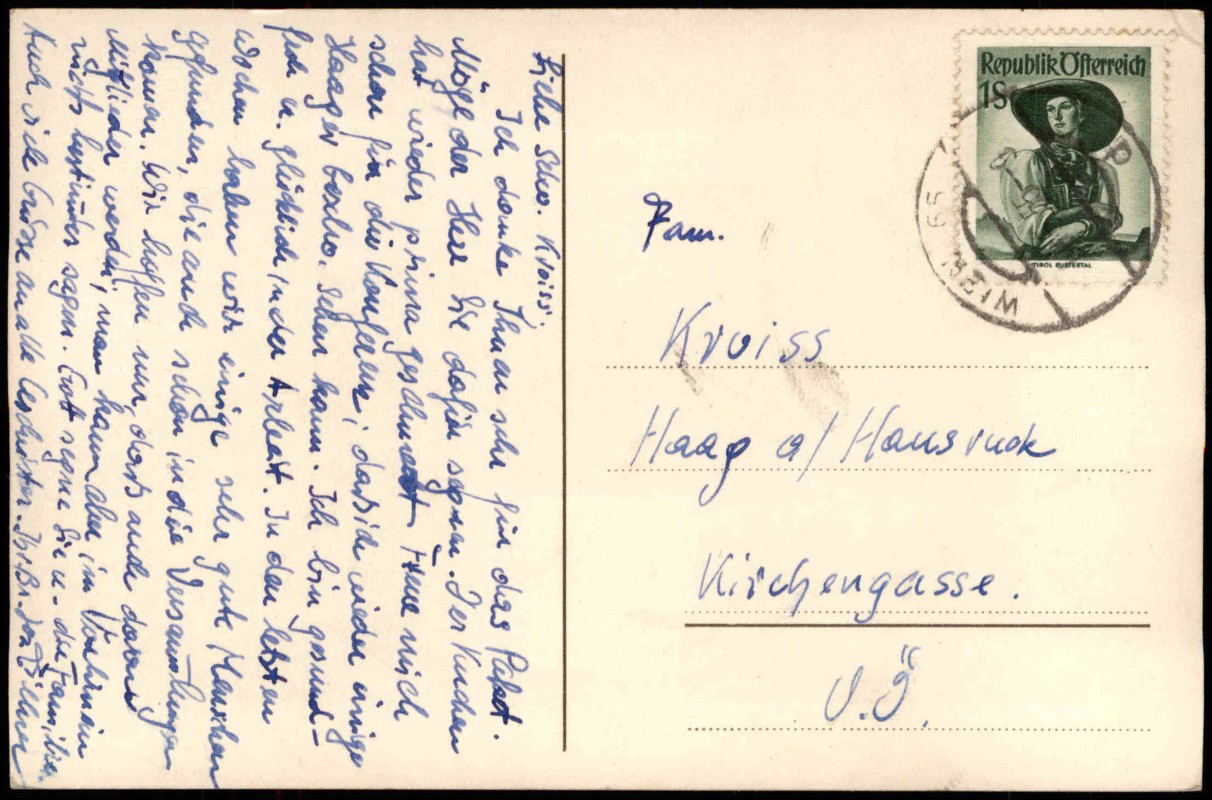 Liebe Schw. Kroiss.
Ich danke Ihnen sehr für das Paket.
Möge der Herr Sie dafür segnen. Der Kuchen
hat wieder prima geschmeckt Freue mich
schon für die Konferenz, das ich wieder einige
Haager besch. sehen kann. Ich bin gesund
froh u. glücklich in der Arbeit. In den letzten
Wochen haben wir einige sehr gute Menschen
gefunden, die auch schon in die Versammlungen
kommen. Wir hoffen nur, dass auch daraus
Mitglieder werden, man kann aber im Vorhinein
nichts bestimtes sagen. Gott segne Sie u. die Familie.
Auch viele Grüße an alle Geschwister. Ihr Br.
Republik Österreich
1S
TIROL PUSTERTAL
WIEN 65
Fam.
Kroiss
Haag a/Hausruck
Kirchengasse.
O.Ö.